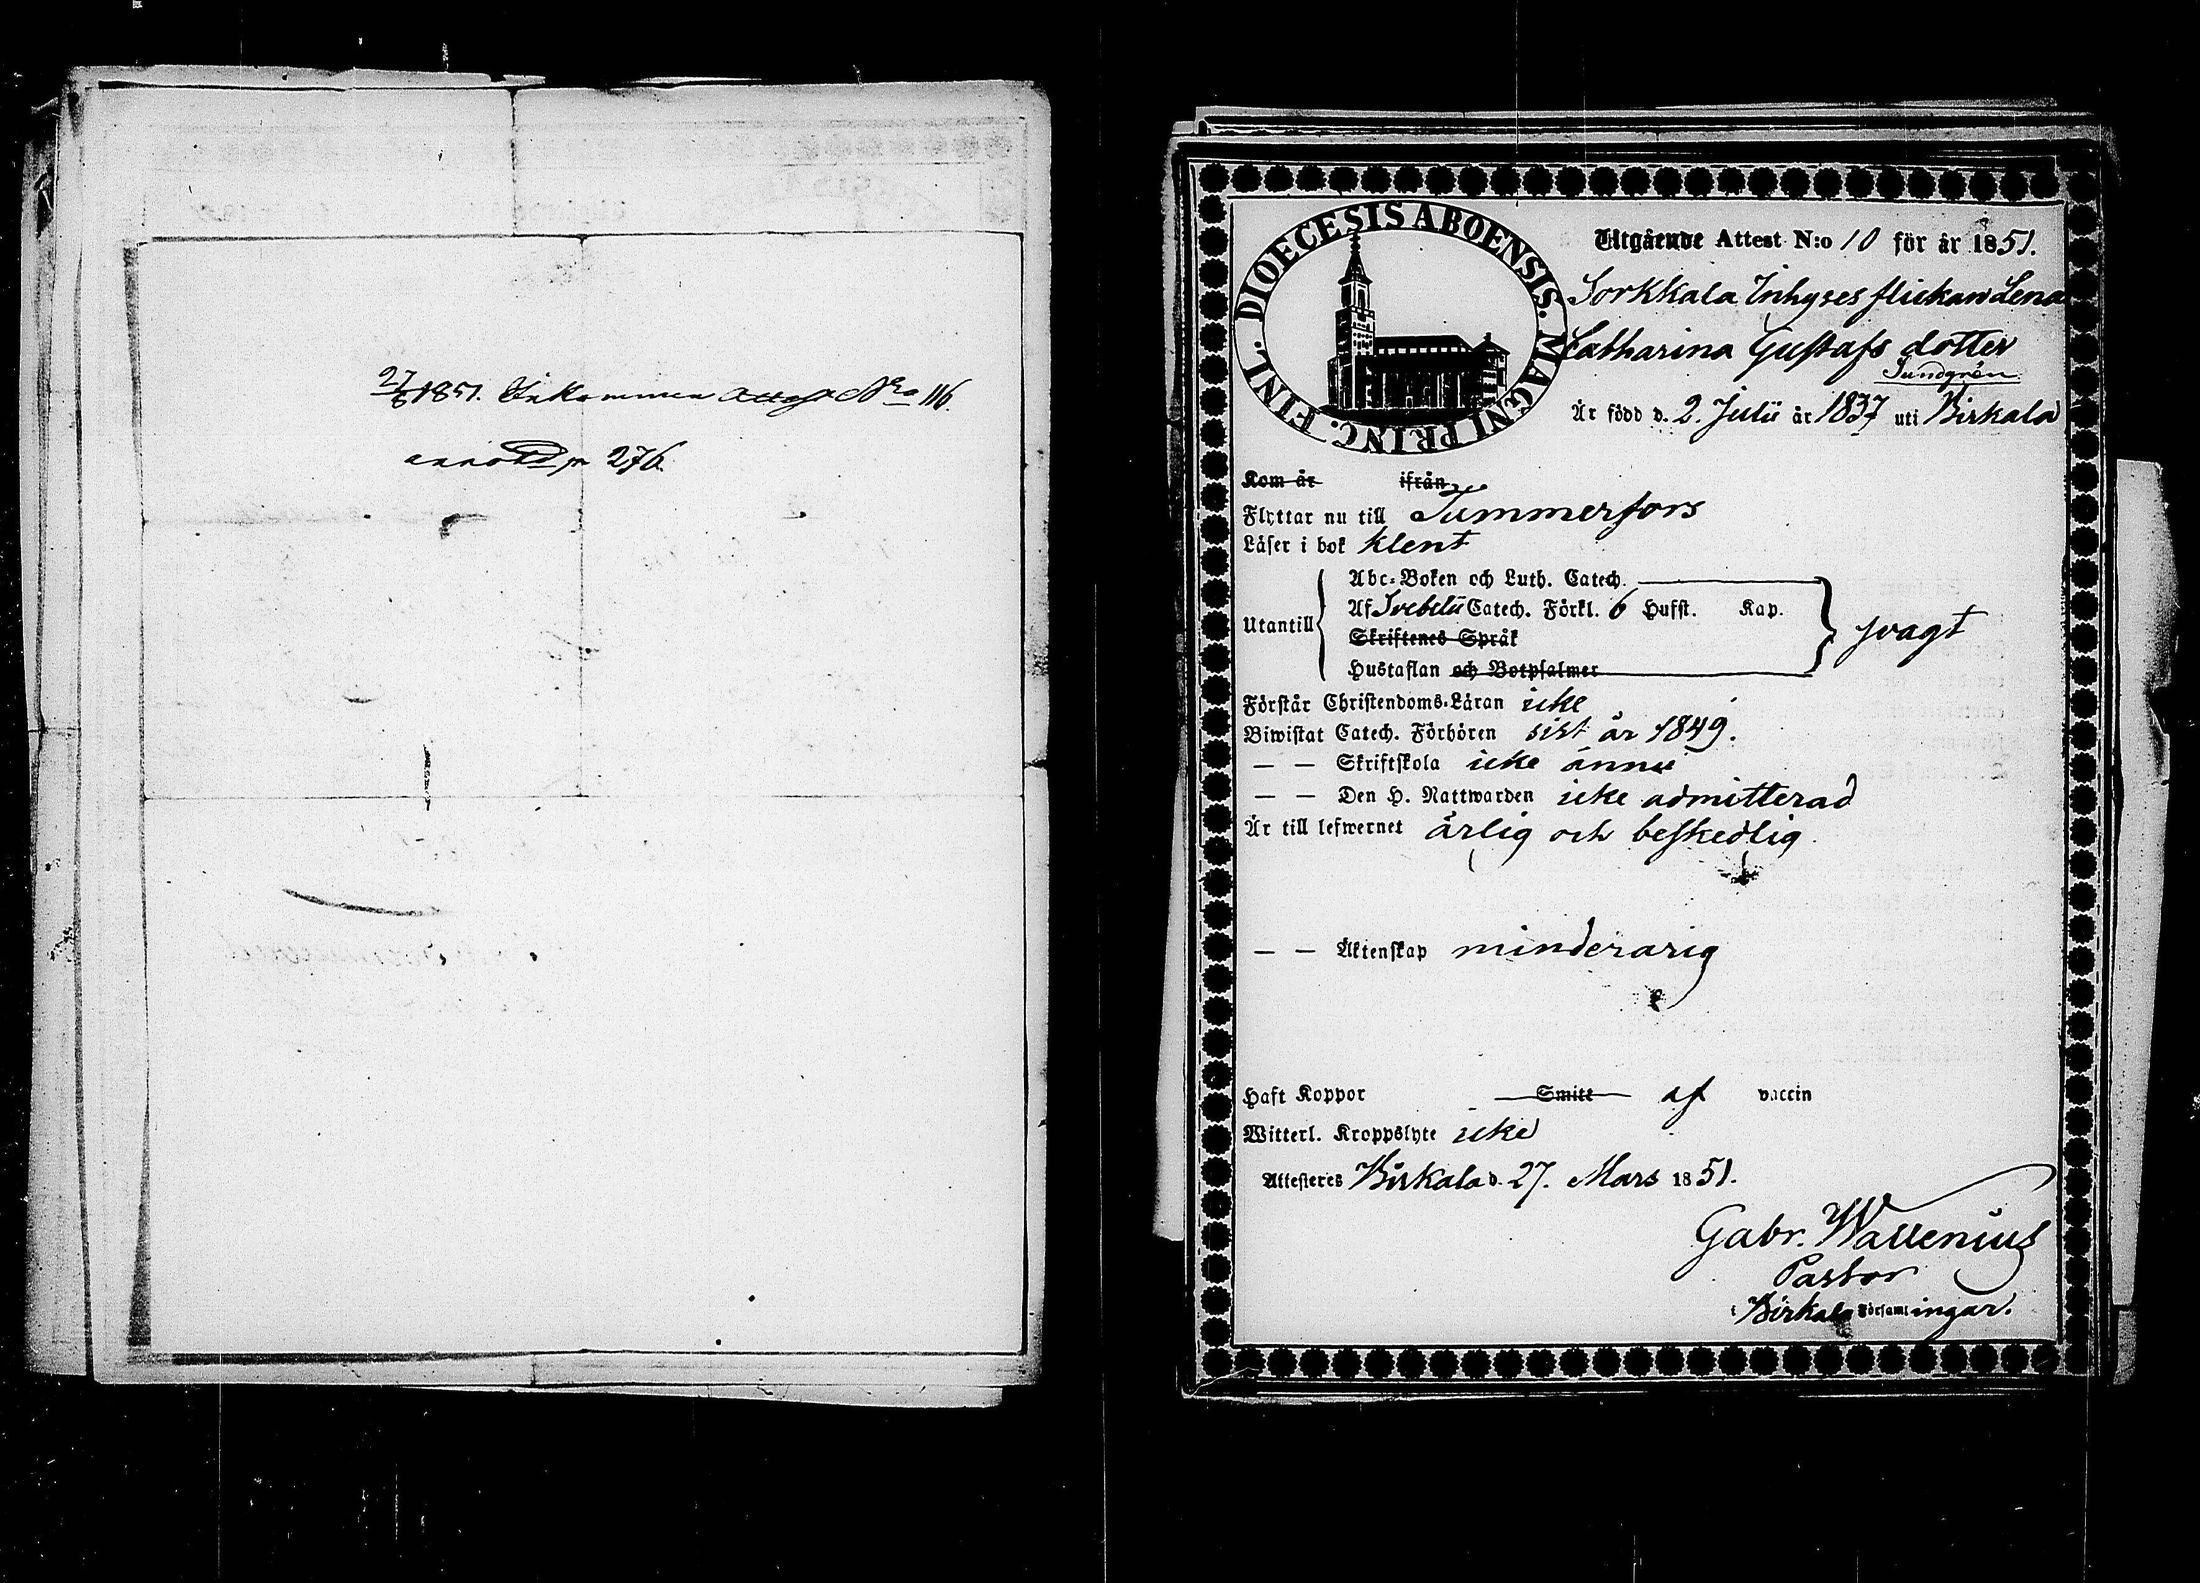 27/6 1851. Inkommen Attest No 116.
annot. p 276.
DIOECESIS ABOENSIS. MAGNI PRINC. FINL.
Utgående Attest N:o 10 för år 1851.
Sorkkala Inhyses flickan Lena
Catharina Gustafs dotter
Sundgrén
Är född d. 2. Julii år 1837 uti Birkala
Kom år ifrån
Flyttar nu till Tammerfors
Läser i bok klent
Abc-Boken och Luth. Catech.
Utantill Af Svebelii Catech. Förkl. 6 Hufst. Kap. svagt
Skriftenes Språk
Hustaflan och Botpsalmer
Förstår Christendoms-Läran icke
Biwistat Catech. Förhören sist år 1849.
— — Skriftskola icke ännu
— — Den H. Nattwarden icke admitterad
Är till lefwernet ärlig och beskedlig
— — Äktenskap minderårig
Haft Koppor Smitt af vaccin
Witterl. Kroppslyte icke
Attesteres Birkala d. 27. Mars 1851.
Gabr. Wallenius
Pastor
i Birkala Församlingar.